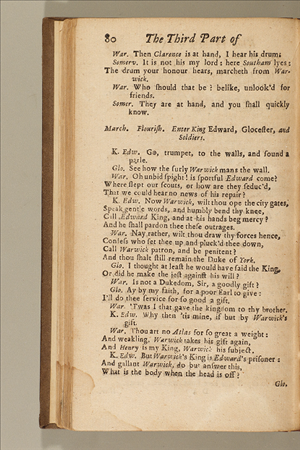 80 The Third Part of
War. Then Clarence is at hand, I hear his drum:
Somerv. It is not his my lord: here Southam lyes;
The drum your honour hears, marcheth from War-
wick.
War. Who should that be? belike, unlook'd for
friends.
Somer. They are at hand, and you shall quickly
know.
March. Flourish. Enter King Edward, Glocester, and
Soldiers.
K. Edw. Go, trumpet, to the walls, and sound a
parle.
Glo. See how the surly Warwick mans the wall.
War. Oh unbid spight! is sportful Edward come?
Where slept our scouts, or how are they seduc'd,
That we could hear no news of his repair?
K. Edw. Now Warwick, wilt thou ope the city gates,
Speak gentle words, and humbly bend thy knee,
Call Edward King, and at his hands beg mercy?
And he shall pardon thee these outrages.
War. Nay rather, wilt thou draw thy forces hence,
Confess who set thee up and pluck'd thee down,
Call Warwick patron, and be penitent?
And thou shalt still remain the Duke of York.
Glo. I thought at least he would have said the King,
Or did he make the jest against his will?
War. Is not a Dukedom, Sir, a goodly gift?
Glo. Ay by my faith, for a poor Earl to give:
I'll do thee service for so good a gift.
War. 'Twas I that gave the kingdom to thy brother.
K. Edw. Why then 'tis mine, if but by Warwick's
gift.
War. Thou art no Atlas for so great a weight:
And weakling, Warwick takes his gift again,
And Henry is my King, Warwick his subject.
K. Edw. But Warwick's King is Edward's prisoner:
And gallant Warwick, do but answer this,
What is the body when the head is off?
Glo.